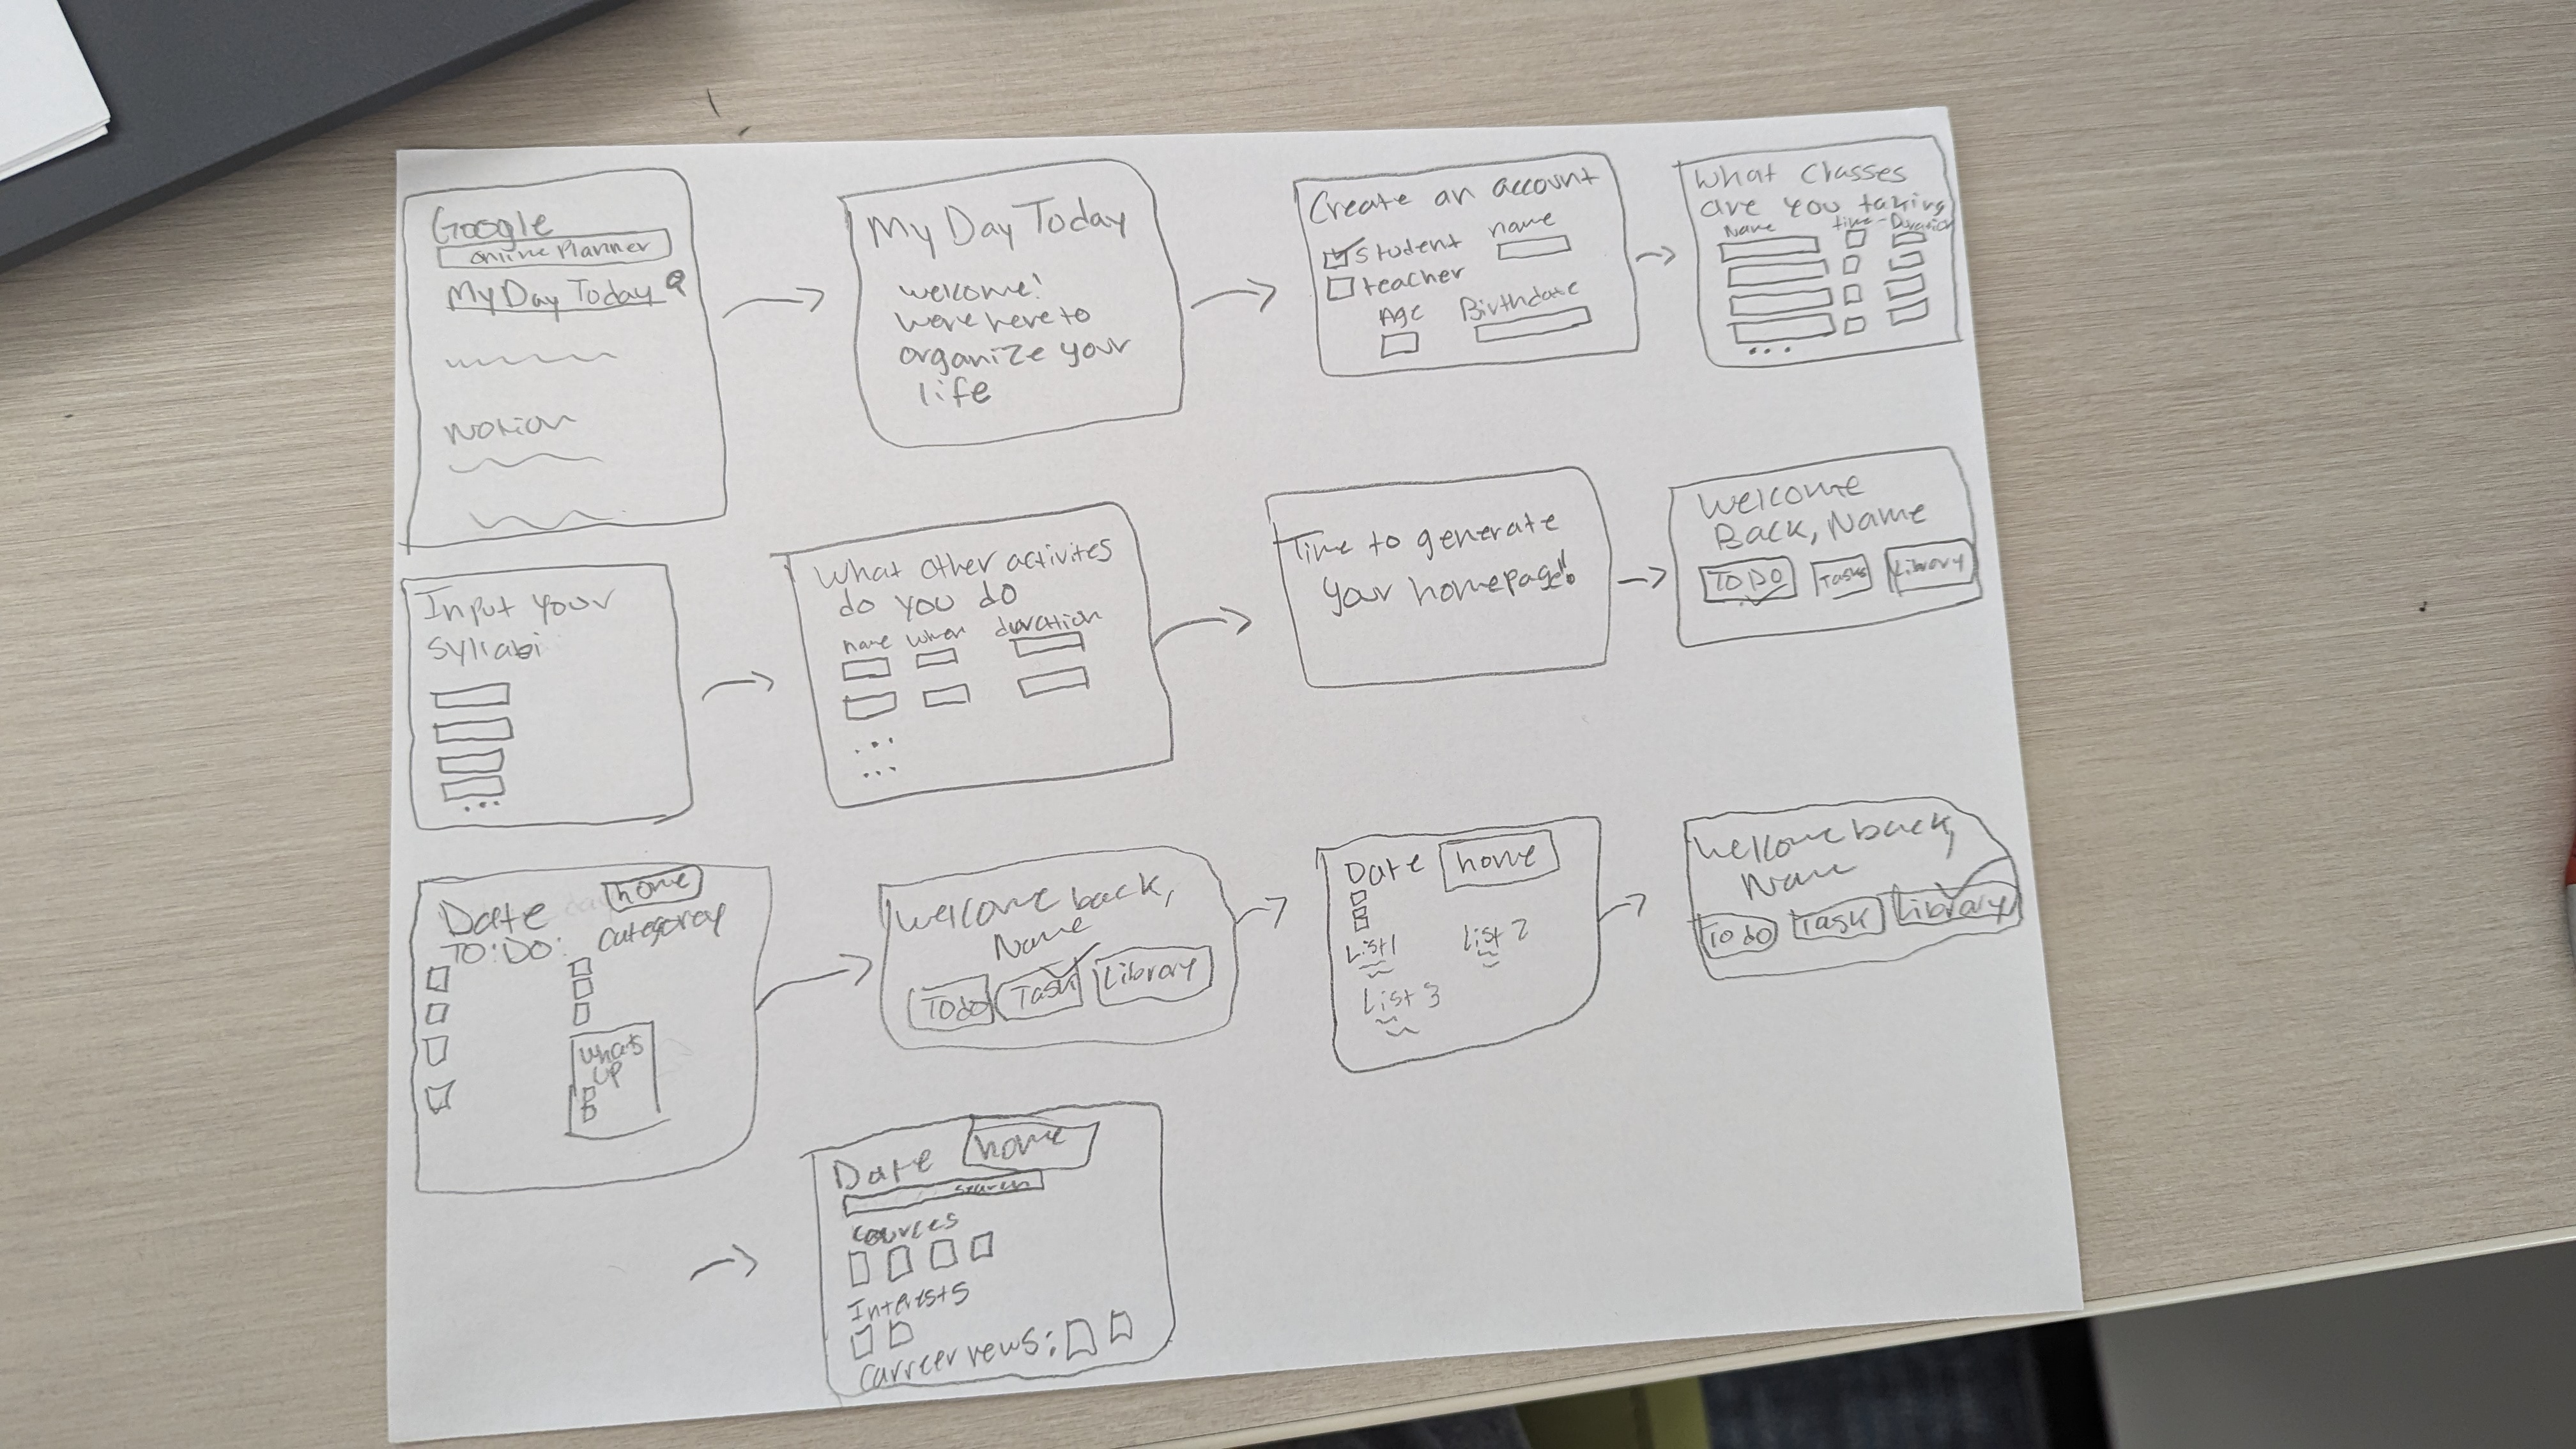 Google
online Planner
My Day Today
Notion
My Day Today
welcome!
were here to
organize your
life
Create an account
student
name
teacher
Age
Birthdate
What Classes
are you taking
Name
time
Duration
...
Input your
syllabi
...
What other activites
do you do
name
when
duration
...
...
Time to generate
your homepage!!
Welcome
Back, Name
TO DO
Tasks
Library
Date
home
TO:DO:
categorey
whats
up
Welcome back,
Name
Todo
Task
Library
Date
home
List 1
List 2
List 3
Welcome back,
Name
To do
Task
Library
Date
home
search
cources
Interests
Carreer news: